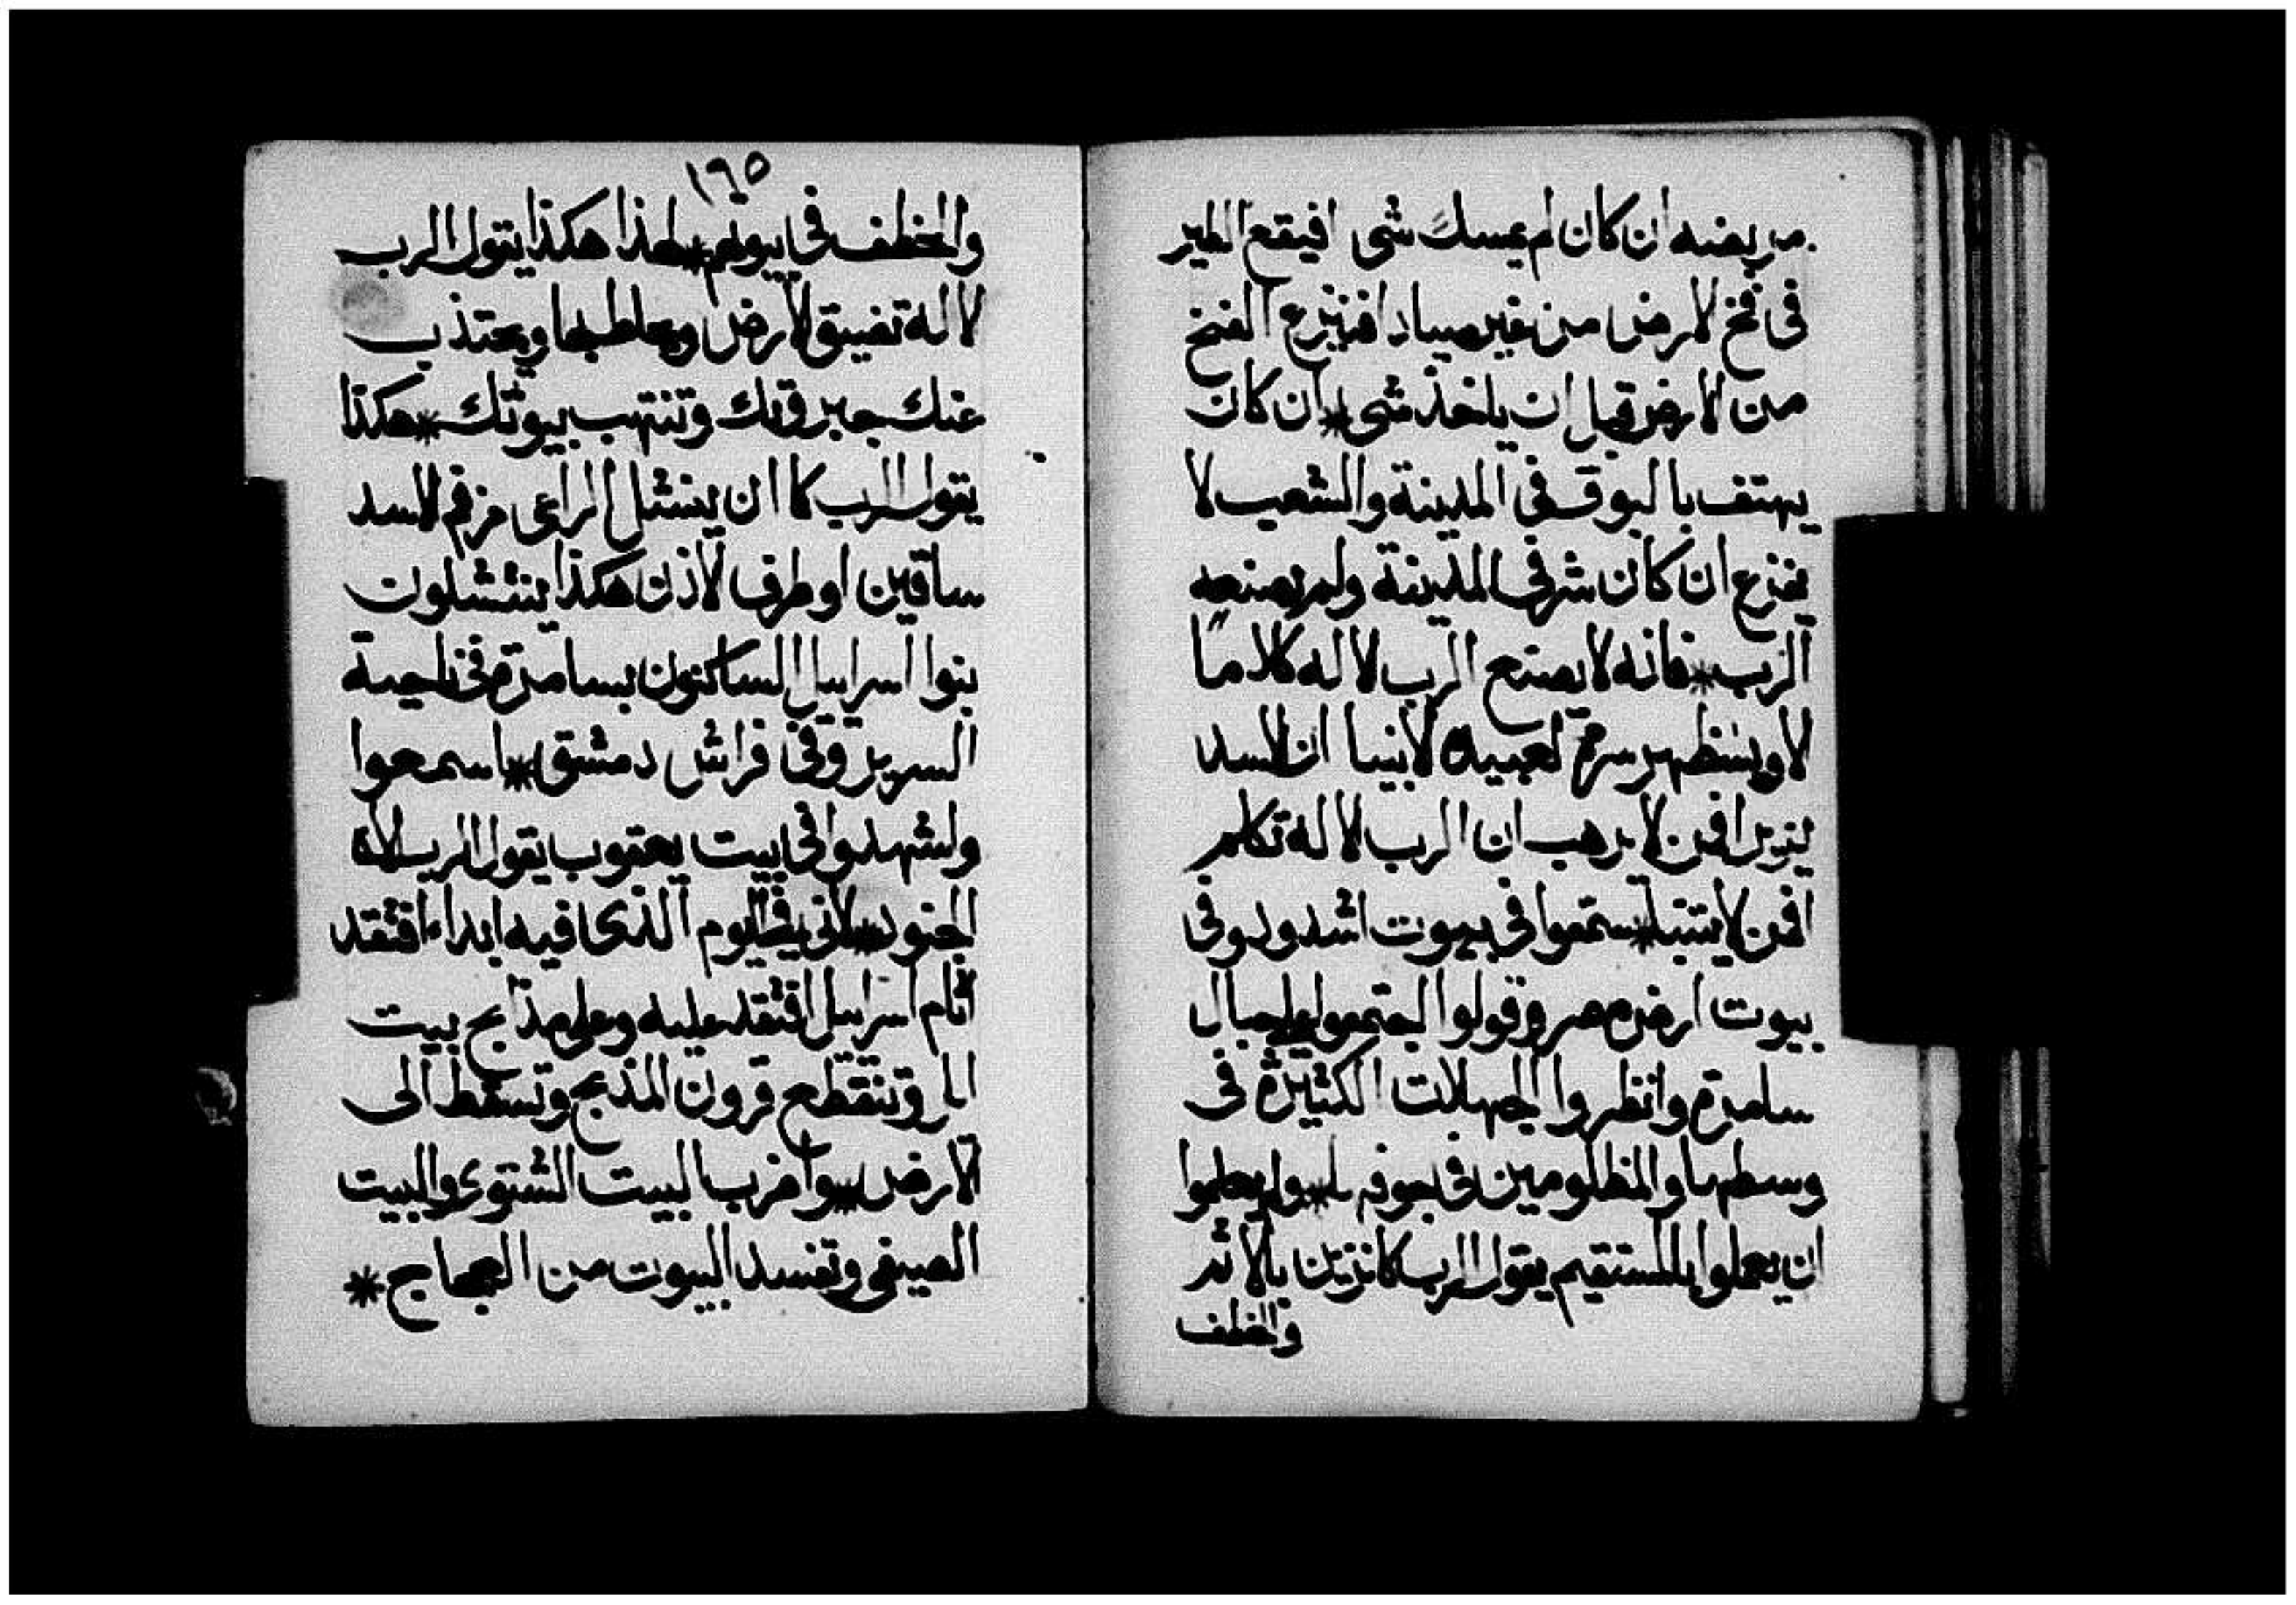 مربضه ان كان لم يمسك شى افيقع الطير
فى فخ الارض من غير صياد افينزع الفخ
من الارض قبل ان ياخذ شى * ان كان
يهتف بالبوق فى المدينة والشعب لا
يفزع ان كان شر فى المدينة ولم يصنعه
الرب * فانه لا يصنع الرب الاله كلاما
الا ويظهر سره لعبيده الانبيا ان الاسد
يزير افمن لا يرهب ان الرب الاله تكلم
افمن لا يتنبا * ستمعوا فى بيوت اشدود وفى
بيوت ارض مصر وقولوا اجتمعوا الى جبال
سامرة وانظروا الجهالات الكثيرة فى
وسطها والمظلومين فى جوفها * ولم يعلموا
ان يعملوا بالمستقيم يقول الرب كانزين بالاثم
والخطف
١٩٥
والخطف فى بيوتهم * لهذا هكذا يقول الرب
الاله تضيق الارض وما حاط بها ويجتذب
عنك جبروتك وتنتهب بيوتك * هكذا
يقول الرب كما ان ينشل الراعى من فم الاسد
ساقين او طرف الاذن هكذا ينتشلون
بنوا اسراييل الساكنون بسامرة فى ناحية
السرير وفى فراش دمشق * اسمعوا
واشهدوا فى بيت يعقوب يقول الرب الاه
الجنود * لانى فى اليوم الذى فيه ابداء افتقد
اثام اسراييل افتقد عليه وعلى مذابح بيت
ال وتنقطع قرون المذبح وتسقط الى
الارض * واضرب البيت الشتوى والبيت
الصيفى وتفسد البيوت من العجاج *